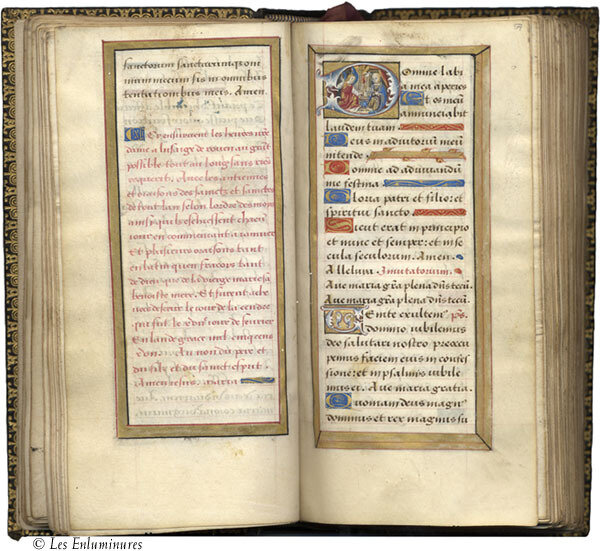 sanctorum sanctarumque omnium
mecum sis in omnibus
tentationibus meis. Amen.
Cy ensuivent les heures nre
dame a lusaige de rouen au
possible tout au long sans rien
requerir. Avec les antiennes
et oraisons des sainctz et sainctes
de tout lan selon lordre des moys
ainsy quilz escheissent chacun
jour en commencant a
Et plusieurs oraisons tant
en latin quen francoys tant
de dieu que de la vierge marie sa
benoiste mere. Et furent
descrire le jour de la cendre
qui fut le jour de fevrier
En lan de grace mil cinq cens
Au nom du pere et
du filz et du sainct esprit.
Amen ihesus. maria
Domine labi
a mea aperies
Et os meu
annunciabit
laudem tuam
Deus in adiutoriu meu
intende
Domine ad adiuvandu
me festina
Gloria patri et filio: et
spiritui sancto.
Sicut erat in principio
et nunc et semper: et in se
cula seculorum. Amen
Alleluya Invitatorium.
Ave maria gra plena dns tecu.
Ave maria gra plena dns tecu.
Venite exultem ps.
domino iubilemus
deo salutari nostro preoccu
pemus faciem eius in confes
sione: et in psalmis iubile
mus ei. Ave maria gratia.
Quoniam deus magn
dominus et rex magnus su
© Les Enluminures